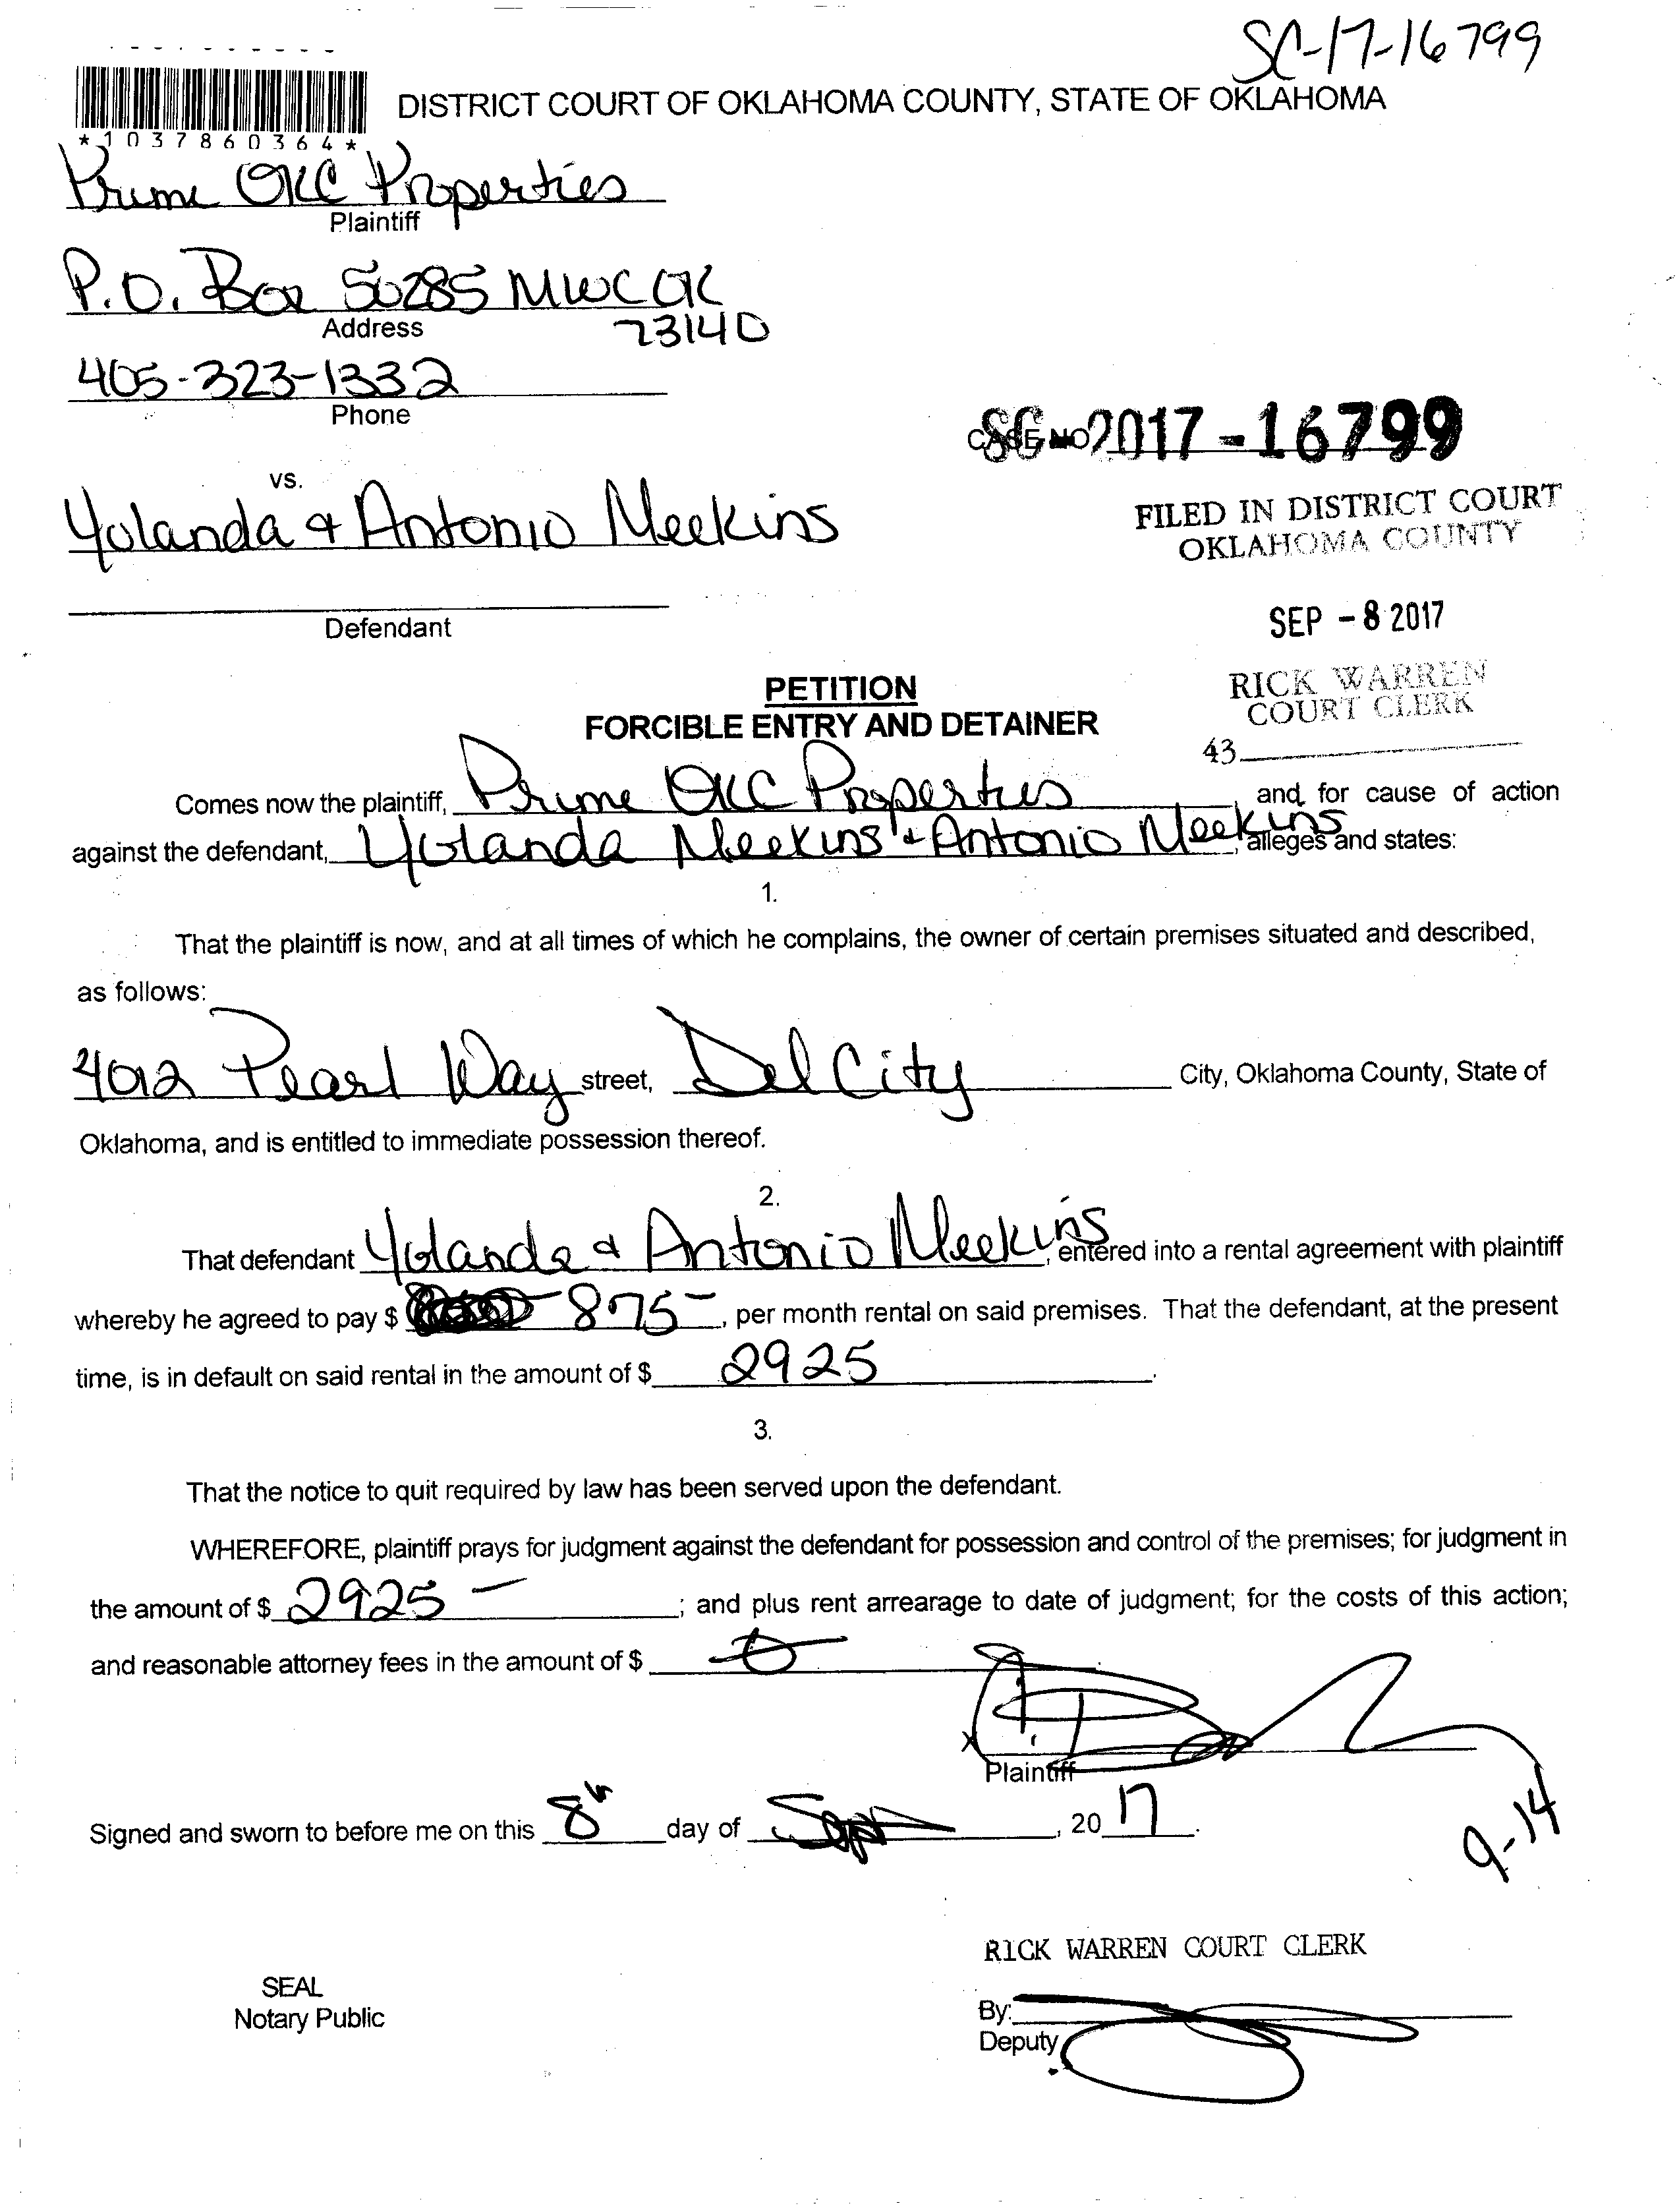 SC-17-16799
DISTRICT COURT OF OKLAHOMA COUNTY, STATE OF OKLAHOMA
*1037860364*
Prime OKC Properties
Plaintiff
P.O. Box 50285 MWC OK
Address 73140
405-323-1332
Phone
CASE NO. SC-2017-16799
vs.
Yolanda & Antonio Meekins
FILED IN DISTRICT COURT
OKLAHOMA COUNTY
Defendant
SEP -8 2017
PETITION
FORCIBLE ENTRY AND DETAINER
RICK WARREN
COURT CLERK
43
Comes now the plaintiff, Prime OKC Properties and, for cause of action
against the defendant, Yolanda Meekins & Antonio Meekins, alleges and states:
1.
That the plaintiff is now, and at all times of which he complains, the owner of certain premises situated and described,
as follows:
4012 Pearl Way street, Del City City, Oklahoma County, State of
Oklahoma, and is entitled to immediate possession thereof.
2.
That defendant Yolanda & Antonio Meekins, entered into a rental agreement with plaintiff
whereby he agreed to pay $ 875-, per month rental on said premises. That the defendant, at the present
time, is in default on said rental in the amount of $ 2925.
3.
That the notice to quit required by law has been served upon the defendant.
WHEREFORE, plaintiff prays for judgment against the defendant for possession and control of the premises; for judgment in
the amount of $ 2925 -; and plus rent arrearage to date of judgment; for the costs of this action;
and reasonable attorney fees in the amount of $ 0
X
Plaintiff
Signed and sworn to before me on this 8th day of Sept, 2017.
9-14
RICK WARREN COURT CLERK
SEAL
Notary Public
By:
Deputy